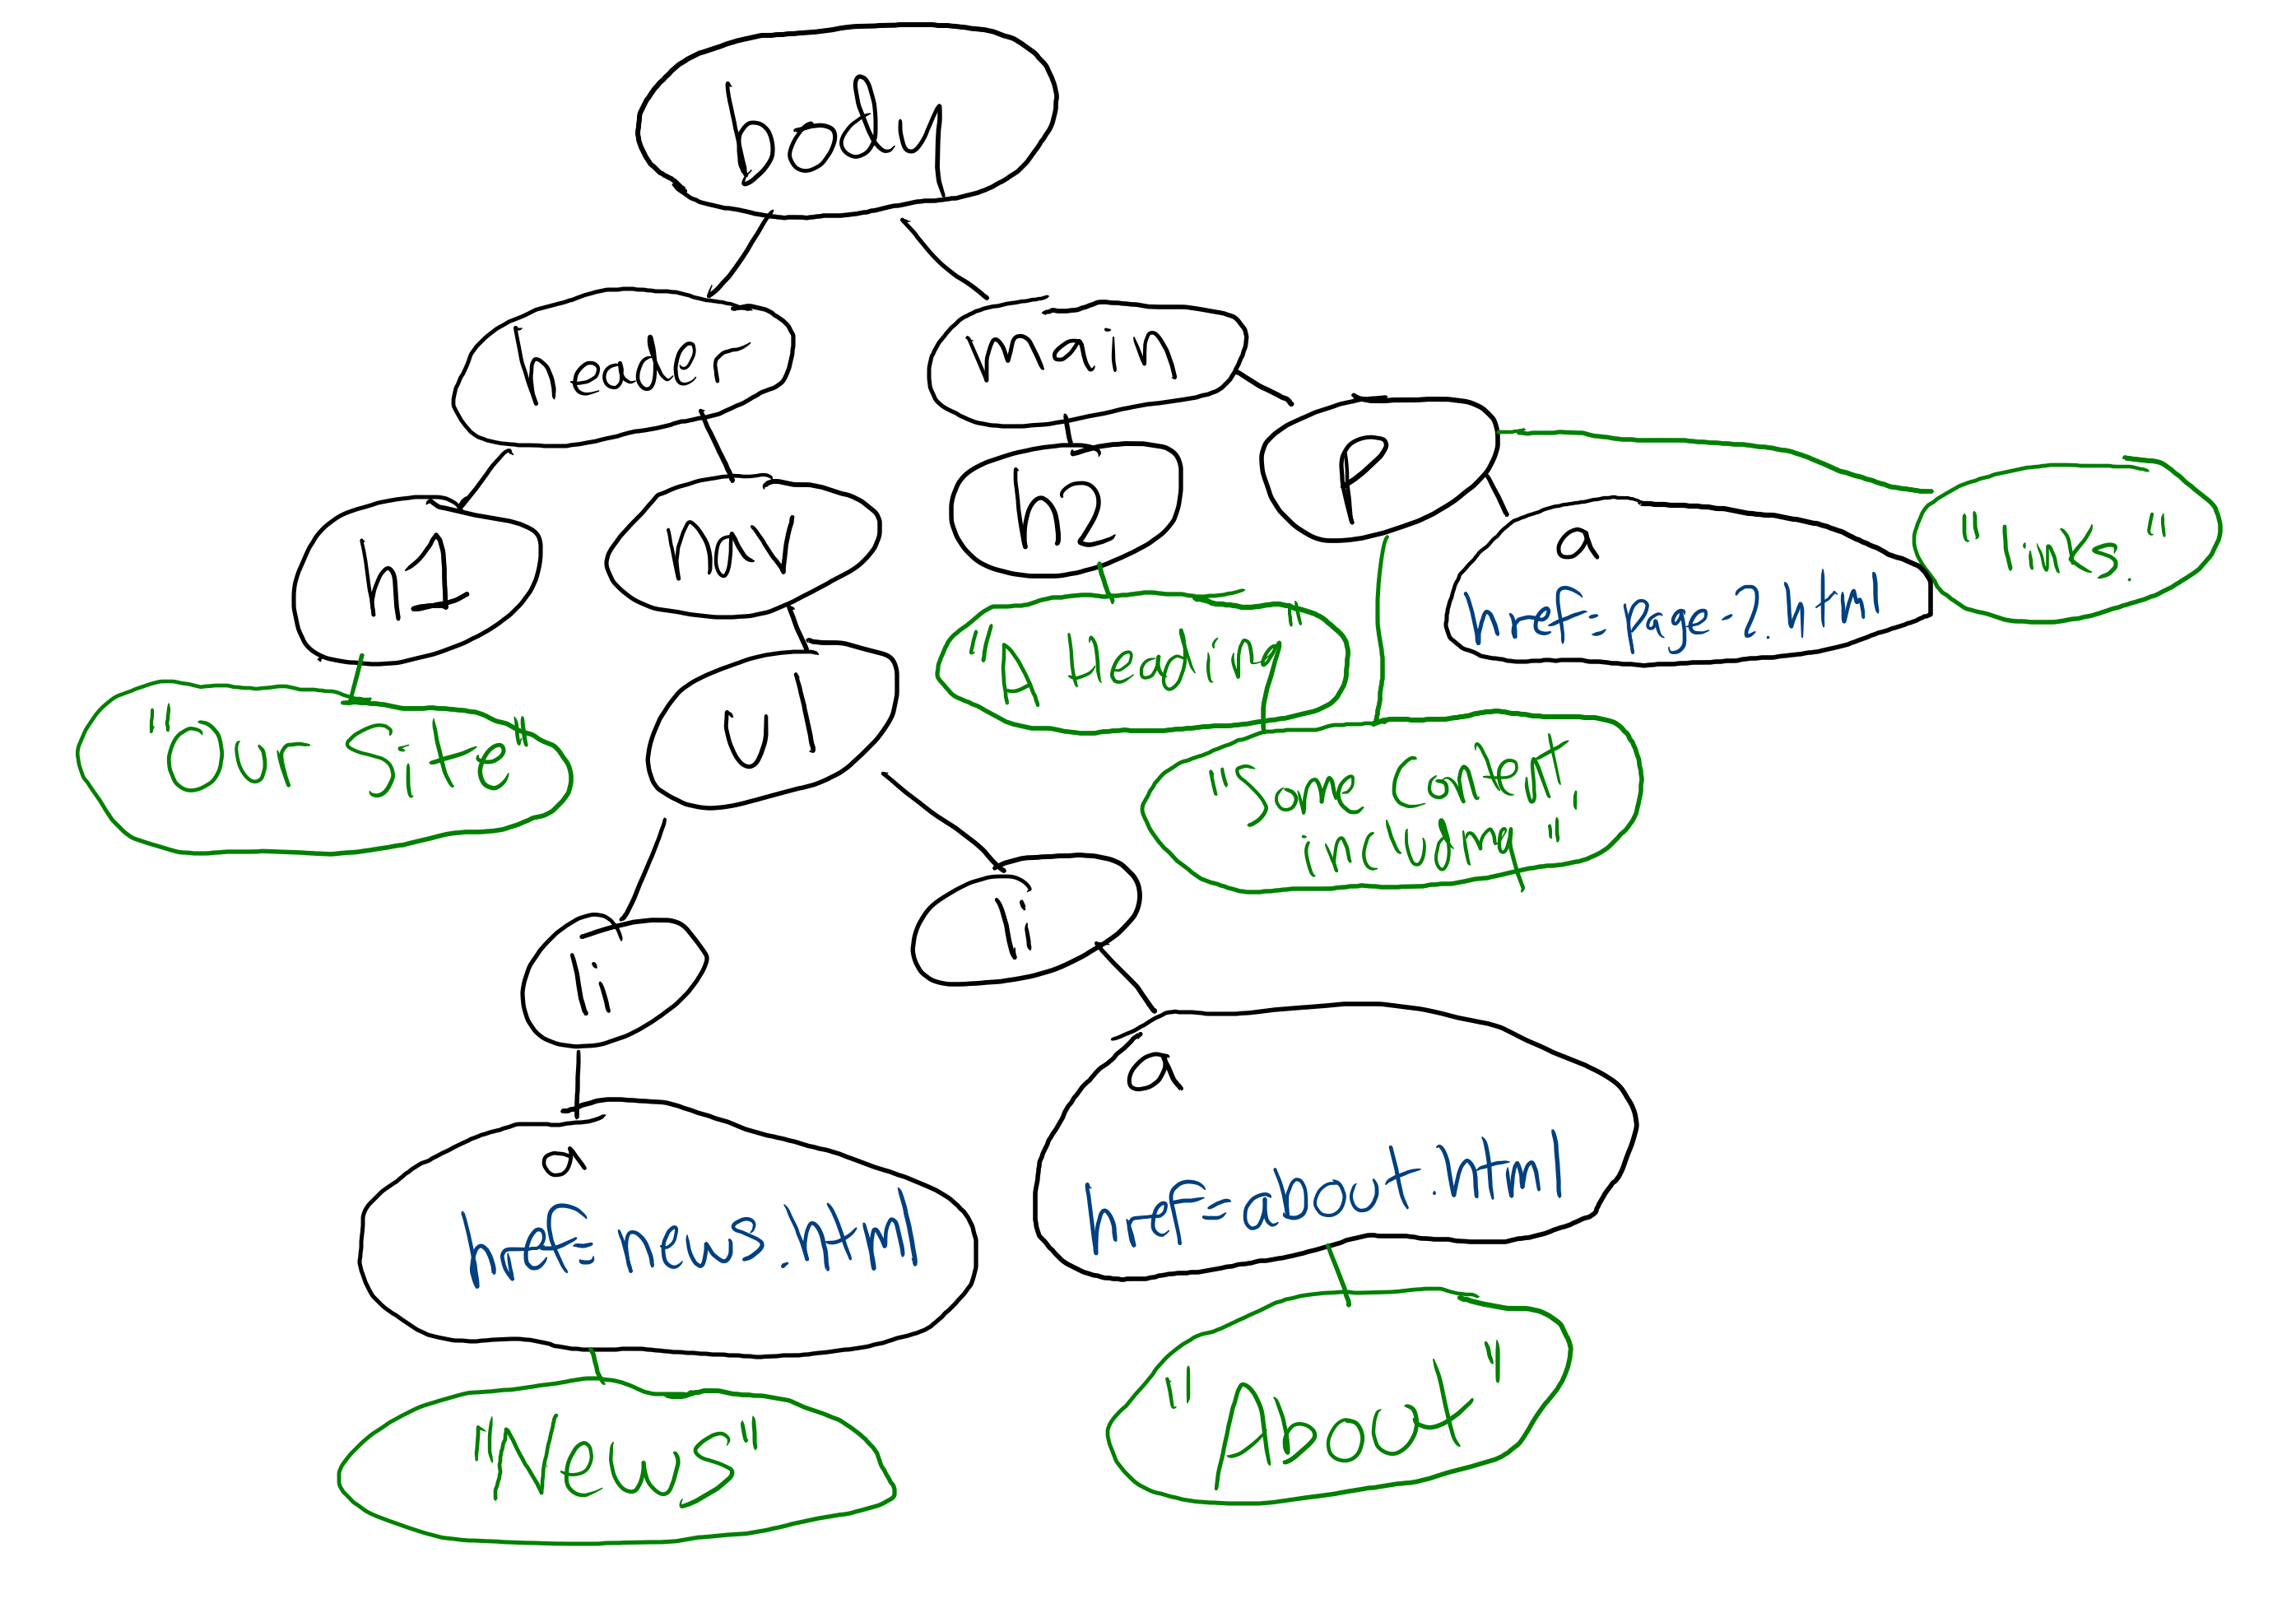 body
header
main
h1
nav
h2
p
a
href=page-2.html
"links."
"Our Site"
ul
"A heading"
"Some content
including"
li
li
a
href=news.html
a
href=about.html
"News"
"About"